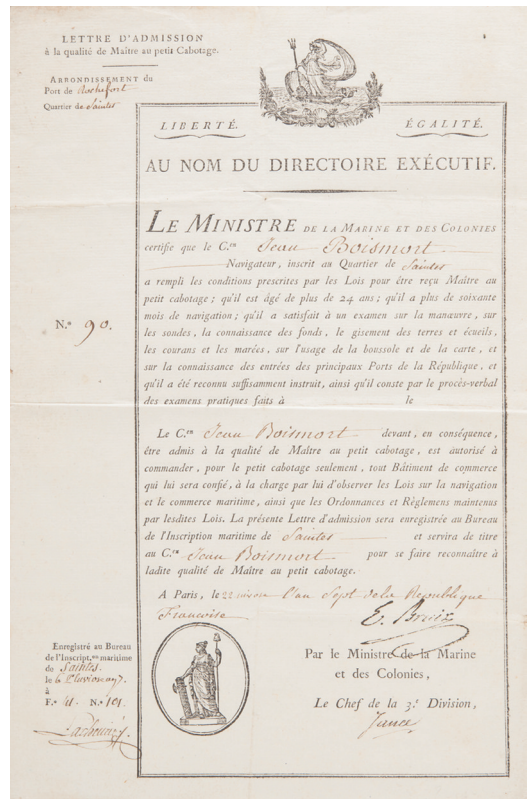 LETTRE D'ADMISSION
à la qualité de Maître au petit Cabotage.
ARRONDISSEMENT du
Port de Rochefort
Quartier de Saintes
LIBERTÉ. ÉGALITÉ.
AU NOM DU DIRECTOIRE EXÉCUTIF.
LE MINISTRE DE LA MARINE ET DES COLONIES
certifie que le C.en Jean Boismort
Navigateur, inscrit au Quartier de Saintes
a rempli les conditions prescrites par les Lois pour être reçu Maître au
petit cabotage; qu'il est âgé de plus de 24 ans; qu'il a plus de soixante
mois de navigation; qu'il a satisfait à un examen sur la manœuvre, sur
les sondes, la connaissance des fonds, le gisement des terres et écueils,
les courans et les marées, sur l'usage de la boussole et de la carte, et
sur la connaissance des entrées des principaux Ports de la République, et
qu'il a été reconnu suffisamment instruit, ainsi qu'il conste par le procès-verbal
des examens pratiques faits à le
N.o 90.
Le C.en Jean Boismort devant, en conséquence,
être admis à la qualité de Maître au petit cabotage, est autorisé à
commander, pour le petit cabotage seulement, tout Bâtiment de commerce
qui lui sera confié, à la charge par lui d'observer les Lois sur la navigation
et le commerce maritime, ainsi que les Ordonnances et Règlemens maintenus
par lesdites Lois. La présente Lettre d'admission sera enregistrée au Bureau
de l'Inscription maritime de Saintes et servira de titre
au C.en Jean Boismort pour se faire reconnaître à
ladite qualité de Maître au petit cabotage.
A Paris, le 22 nivose l'an Sept de la République
Francoise
E. Bruix
Par le Ministre de la Marine
et des Colonies,
Le Chef de la 3.e Division,
Enregistré au Bureau
de l'Inscript.on maritime
de Saintes
le 6 Pluviose an 7.
à
F.o N.o 101.